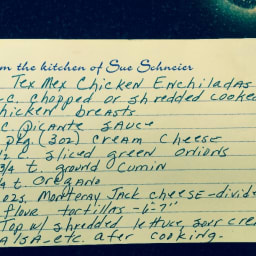 m the kitchen of Sue Schneier
Tex Mex Chicken Enchiladas
C. chopped or shredded cooked
hicken breasts
C picante sauce
pkg (3oz) cream cheese
1/2 C sliced green onions
3/4 t. ground cumin
4 t. oregano
ozs. Monteray Jack cheese-divide
flour tortillas - 6-7"
Top w/ shredded lettuce, sour cre
alsa, etc. ater cooking.